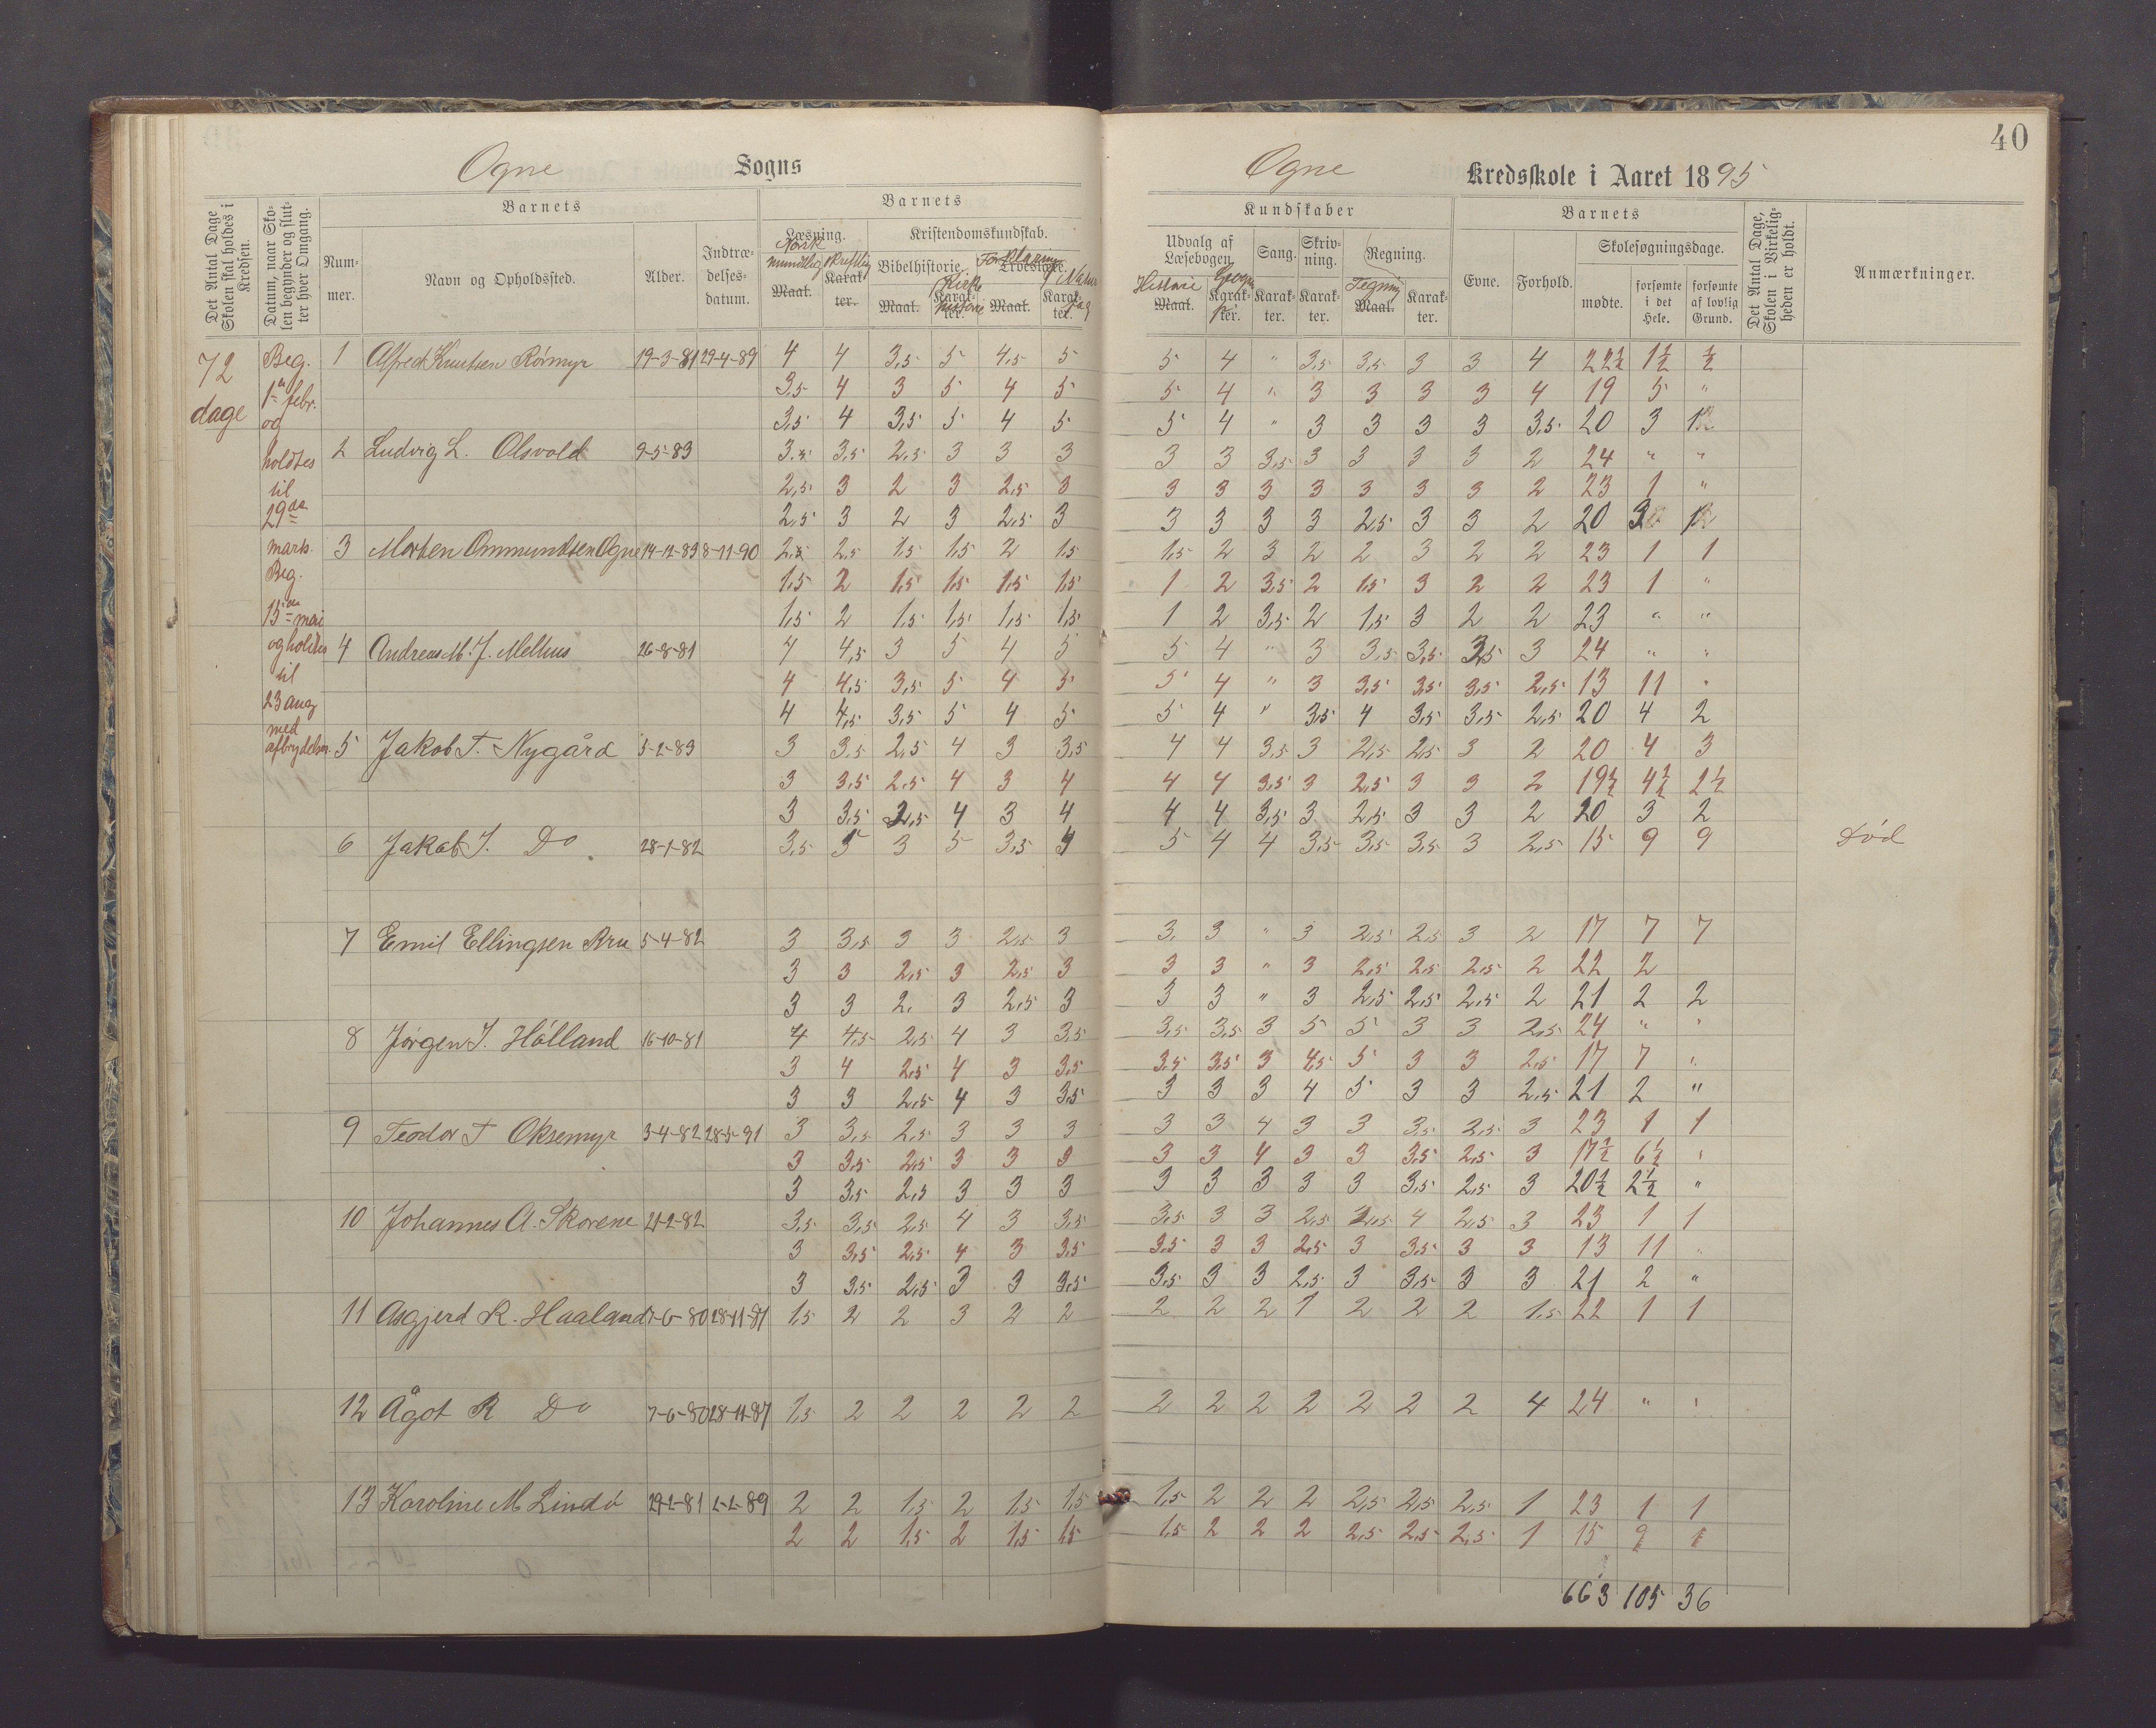 40
Ogne Sogns
Ogne Kredsskole i Aaret 1895
Det Antal Dage Skolen skal holdes i Kredsen.
Datum, naar Skolen begynder og slutter hver Omgang.
Barnets
Nummer.
Navn og Opholdssted.
Alder.
Indtrædelsesdatum.
Barnets
Læsning.
Norsk
mundtlig skriftlig
Maal. Karakter.
Kristendomskundskab.
Bibelhistorie. Troeslære.
Forklaring
Kirkehistorie Naturfag
Maal. Karakter. Maal. Karakter.
Kundskaber
Udvalg af Læsebogen
Historie Geografi
Maal. Karakter.
Sang. Karakter.
Skrivning. Karakter.
Regning.
Tegning
Maal. Karakter.
Barnets
Evne. Forhold.
Skolesøgningsdage.
mødte. forsømte i det Hele. forsømte af lovlig Grund.
Det Antal Dage, Skolen i Virkeligheden er holdt.
Anmærkninger.
72 dage
Beg. 1ste febr. og holdtes til 29de marts. Beg. 15de mai og holdtes til 23 aug med afbrydelser.
1 Alfred Knutsen Rörmyr 19-3-81 29-4-89 4 4 3,5 5 4,5 5 5 4 " 3,5 3,5 3 3 4 22½ 1½ ½
3,5 4 3 5 4 5 5 4 " 3 3 3 3 4 19 5 "
3,5 4 3,5 5 4 5 5 4 " 3 3 3 3 3,5 20 3
2 Ludvig L. Olsvold 9-5-83 3,5 2,5 3 3 3 3 3 3,5 3 3 3 3 2 24 " "
2,5 3 2 3 2,5 3 3 3 3 3 3 3 3 2 23 1 "
2,5 3 2 3 2,5 3 3 3 3 3 2,5 3 3 2 20
3 Morten Ommundsen Ogne 14-12-83 8-11-90 2,5 1,5 1,5 2 1,5 1,5 2 3 2 2 3 2 2 23 1 1
1,5 2 1,5 1,5 1,5 1,5 1 2 3,5 2 1,5 3 2 2 23 1 "
1,5 2 1,5 1,5 1,5 1,5 1 2 3,5 2 1,5 3 2 2 23 " "
4 Andreas M. J. Melhus 26-8-81 4 4,5 3 5 4 5 5 4 " 3 3,5 3,5 3,5 3 24 " "
4 4,5 3,5 5 4 5 5 4 " 3 3,5 3,5 3,5 2,5 13 11 "
4 4,5 3,5 5 4 5 5 4 " 3,5 4 3,5 3,5 2,5 20 4 2
5 Jakob T. Nygård 5-2-83 3 3,5 2,5 4 3 3,5 4 4 3,5 3 2,5 2,5 3 2 20 4 3
3 3,5 2,5 4 3 4 4 4 3,5 3 2,5 3 3 2 19½ 4½ 2½
3 3,5 2,5 4 3 4 4 4 3,5 3 2,5 3 3 2 20 3 2
6 Jakob J. Do 28-1-82 3,5 5 3 5 3,5 4 5 4 4 3,5 3,5 3,5 3 2,5 15 9 9 Död
7 Emil Ellingsen Aru 5-4-82 3 3,5 3 3 2,5 3 3 3 " 3 2,5 2,5 3 2 17 7 7
3 3 2,5 3 2,5 3 3 3 " 3 2,5 2,5 2,5 2 22 2
3 3 2. 3 2,5 3 3 3 " 3 2,5 2,5 2,5 2 21 2 2
8 Jörgen J. Hölland 16-10-81 4 4,5 2,5 4 3 3,5 3,5 3,5 3 5 5 3 3 2,5 24 " "
3 4 2,5 4 3 3,5 3,5 3,5 3 4,5 5 3 3 2,5 17 7 "
3 3 2,5 4 3 3,5 3 3 3 4 5 3 3 2,5 21 2 "
9 Teodor T Oksemyr 3-4-82 28-5-91 3 3,5 2,5 3 3 3 3 3 4 3 3 3,5 2,5 3 23 1 1
3 3,5 2,5 3 3 3 3 3 4 3 3 3,5 2,5 3 17½ 6½ "
3 3,5 2,5 3 3 3 3 3 3 3 3 3,5 2,5 3 20½ 2½ "
10 Johannes A. Skorene 21-2-82 3,5 3,5 2,5 4 3 3,5 3,5 3 3 2,5 2,5 4 2,5 3 23 1 1
3 3,5 2,5 4 3 3,5 3,5 3 3 2,5 3 3,5 3 3 13 11 "
3 3,5 2,5 3 3 3,5 3,5 3 3 2,5 3 3,5 3 3 21 2 "
11 Asgjerd R. Haaland 7-6-80 28-11-87 1,5 2 2 3 2 2 2 2 2 1 2 2 2 1,5 22 1 1
12 Ågot R Do 7-6-80 28-11-87 1,5 2 2 2 2 2 2 2 2 2 2 2 2 4 24 " "
13 Karoline M Lindö 29-1-81 2-2-89 2 2 1,5 2 1,5 1,5 1,5 2 2 2 2,5 2,5 2,5 1 23 1 1
2 2 1,5 2 1,5 1,5 1,5 2 2 2 2,5 2,5 2,5 1 15 9
663 105 36